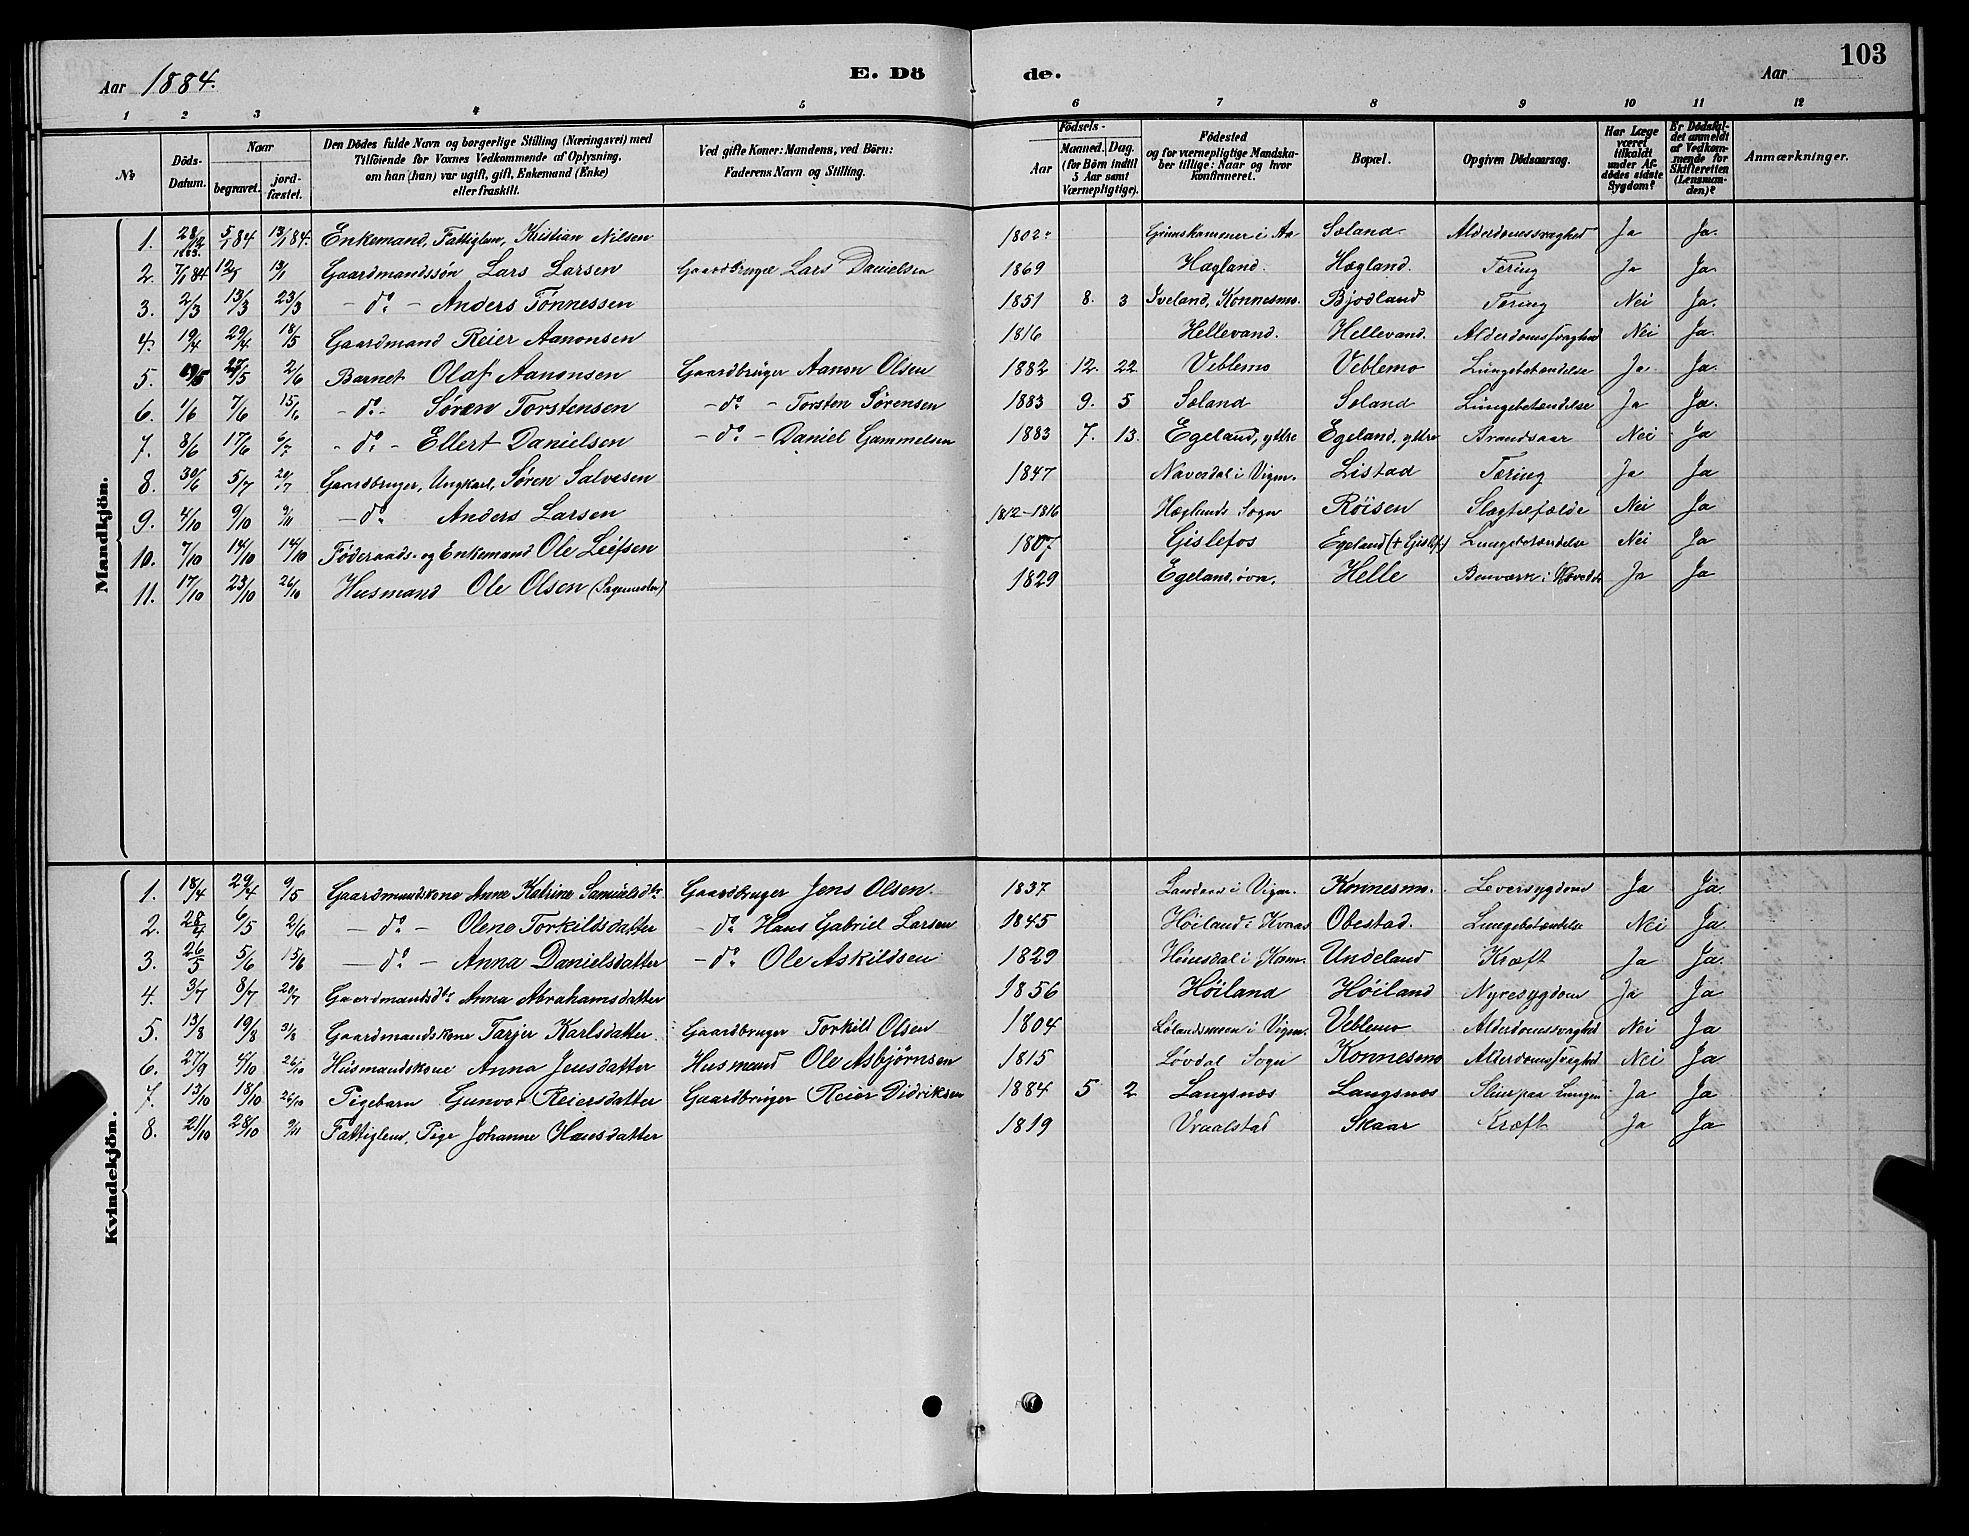 Aar 1884. E. Dö de. Aar 103
1 2 3 4 5 6 7 8 9 10 11 12
No
Döds-Datum.
Naar
begravet. jordfæstet.
Den Dödes fulde Navn og borgerlige Stilling (Næringsvei) med
Tilföiende for Voxnes Vedkommende af Oplysning,
om han (hun) var ugift, gift, Enkemand (Enke)
eller fraskilt.
Ved gifte Koner: Mandens, ved Börn:
Faderens Navn og Stilling.
Födsels-
Aar
Maaned. Dag.
(for Börn indtil
5 Aar samt
Værnepligtige).
Födested
og for værnepligtige Mandska-
ber tillige: Naar og hvor
konfirmeret.
Bopæl.
Opgiven Dödsaarsag.
Har Læge
været
tilkaldt
under Af-
dödes sidste
Sygdom?
Er Dödsfal-
det anmeldt
af Vedkom-
mende for
Skifteretten
(Lensman-
den)?
Anmærkninger.
Mandkjön.
1. 28/12 1883. 5/1 84 13/1 84. Enkemand, Fattiglem, Kristian Nilsen 1802. Grimskammer i Aa Søland. Alderdomssvaghed Ja Ja.
2. 7/1 84. 12/1 13/1 Gaardmandssøn Lars Larsen Gaardbruger Lars Danielsen 1869 Hægland. Hægland. Tæring Ja Ja.
3. 2/3 13/3 23/3 - do - Anders Tønnessen 1851 8. 3 Iveland, Konnesmo. Bjodland Tæring Nei Ja.
4. 19/4 29/4 18/5 Gaardmand Reier Aanonsen 1816 Hellevand. Hellevand. Alderdomssvaghed Nei Ja.
5. 19/5 27/5 2/6 Barnet Olaf Aanonsen Gaardbruger Aanon Olsen 1882 12. 22. Veblemo Veblemo Lungebetændelse Ja. Ja.
6. 1/6 7/6 15/6 - do - Søren Torstensen - do - Torsten Sørensen 1883 9. 5 Søland Søland Lungebetændelse Ja Ja.
7. 8/6 17/6 6/7 - do - Ellert Danielsen - do - Daniel Gammelsen 1883 7. 13. Egeland, ytre Egeland, ytre Brandsaar Nei Ja
8. 30/6 5/7 20/7 Gaardbruger, Ungkarl, Søren Salvesen 1847 Naverdal i Vigm. Listad Tæring Ja Ja
9. 4/10 9/10 9/11 - do Anders Larsen 1812-1816 Hæglands Sogn Röisen Slagtilfælde Nei Ja
10. 7/10 14/10 14/10 Føderaads- og Enkemand Ole Leifsen 1807 Gislefos Egeland (+ Gislef) Lungebetændelse Nei Ja
11. 17/10 23/10 26/10 Husmand Ole Olsen 1829 Egeland, øvr. Helle Benværk i Hovedet Ja Ja
Kvindekjön.
1. 18/4 29/4 9/5 Gaardmandskone Anne Katrine Samuelsdtr Gaardbruger Jens Olsen. 1837 i Vigm. Konnesmo. Leversygdom Ja Ja.
2. 28/4 6/5 2/6 - do - Olene Torkildsdatter - do Hans Gabriel Larsen 1845 Höiland i Kvinas Obestad. Lungebetændelse Nei Ja.
3. 26/5 5/6 15/6 - do - Anna Danielsdatter - do Ole Askildsen 1829 i Undeland Kræft Ja Ja.
4. 3/7 8/7 20/7 Gaardmandsdtr Anna Abrahamsdatter 1856 Höiland Höiland Nyresygdom Ja Ja
5. 13/8 19/8 31/8 Gaardmandskone Tarjer Karlsdatter Gaardbruger Torkild Olsen 1804 Lølandsmoen i Vigm. Veblemo Alderdomssvaghed Nei Ja
6. 27/9 4/10 26/10 Husmandskone Anna Jensdatter Husmand Ole Asbjørnsen 1815 Løvdal Sogn Konnesmo Alderdomssvaghed Nei Ja
7. 13/10 18/10 26/10 Pigebarn Gunvor Reiersdatter Gaardbruger Reier Didriksen 1884 5 2 Langsnæs Langsnæs Sliim paa Lungen Ja Ja
8. 21/10 28/10 9/11 Fattiglem, Pige Johanne Olausdatter 1819 Vraalstad Skaar Kræft Ja Ja